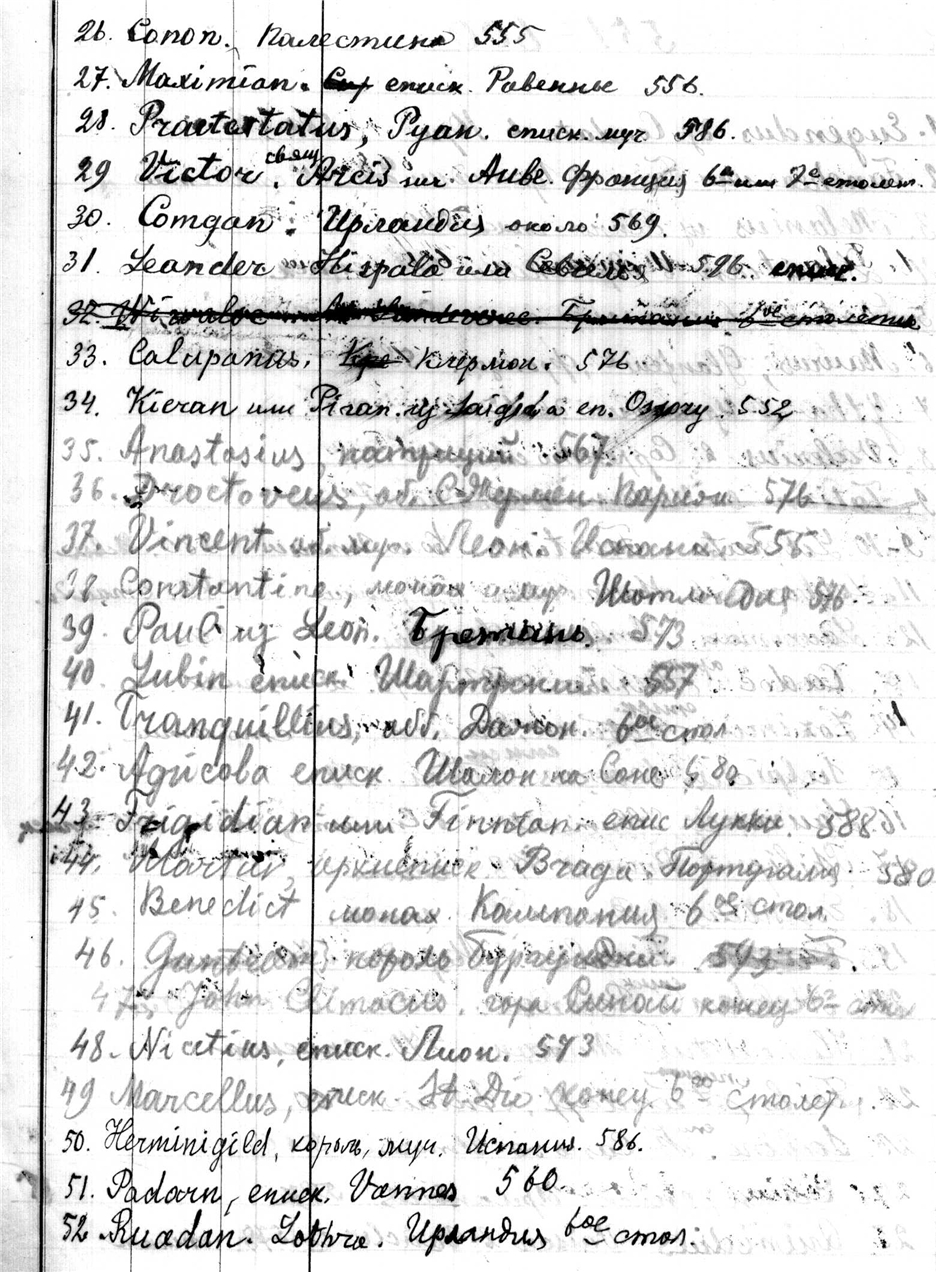 26. Conon. Палестина 555
27. Maximian. еписк. Равенны 556.
28. Praetextatus, Руан. еписк. муч 586.
29 Victor. свящ Arcis sur. Aube. Франция 6а или 7е столет.
30. Comgan. Ирландия около 569.
31. Leander Hispala или Севилья 596. епис.
32. или 6ое столетие
33. Calupanus. Клермон. 576
34. Kieran или Piran. из Saigir еп. Ossory 552
35. Anastasius, патриций 567
36. Droctoveus, аб. С-Жермен. Париж 576
37. Vincent аб. муч. Леон. Испания 555.
38. Constantine, монах и муч Шотландия 576.
39. Paul из Leon. Бретань. 573
40. Lubin еписк. 557
41. Tranquillius, абб. Дижон. 6ое стол
42. Agricola еписк. Шалон на Соне 580
43. Frigidian или Finntan. епис Лукки. 588
44. Martin, архиеписк. Braga. Португалия 580
45. Benedict монах Кампания 6ое стол.
46. король Бургундский 593.
47. John Climacus. гора Синай конец 6го
48. Nicetius, еписк. Лион. 573
49 Marcellus, еписк. St. Die конец 6ое столет.
50. Herminigild, король, муч. Испания. 586.
51. Padarn, еписк. Vannes 560.
52. Ruadan. Lothra. Ирландия 6ое стол.